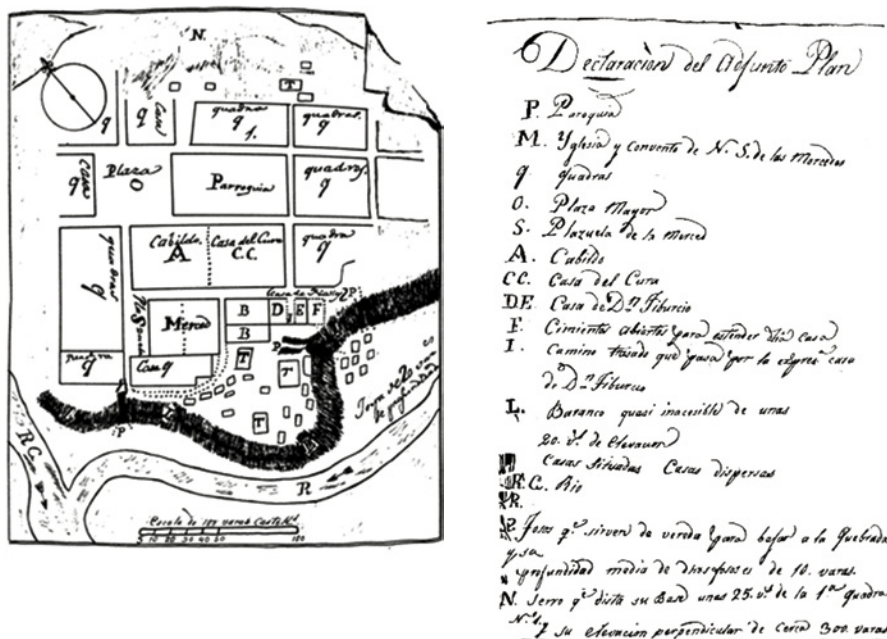 N.
T
q
Casa
q
quadra
q
1.
quadras.
q
Casa
q
Plaza
O
Parroquia
quadras.
q
quadras
q
Cabildo.
A
Casa del Cura
C.C.
quadra
q
Merced
B
D
E
F
P
B
P
T
T
T
q
Casa q
P
L
R C.
R
Escala de
varas
Declaración del Adjunto Plan
P. Paroquia
M. Yglesia y convento de N. S. de las Mercedes
q quadras
O. Plaza Mayor
S. Plazuela de la Merced
A. Cabildo
CC. Casa del Cura
DE Casa de Dn Tiburcio
F. Cimientos abiertos para estender dha casa
I. Camino trasado que pasa por la expresa casa
de Dn Tiburcio
L. Baranco quasi inacesible de unas
20. vs. de elevacion
Casas situadas Casas dispersas
R.C. Rio
R.
P. Fosos qe. sirven de vereda para bajar a la Quebrada
y su
profundidad media de de 10. varas.
N. Serro qe. dista su Base unas 25. vs. de la 1a. quadra
No. 1.
Y su elevacion perpendicular de cerca 300. varas